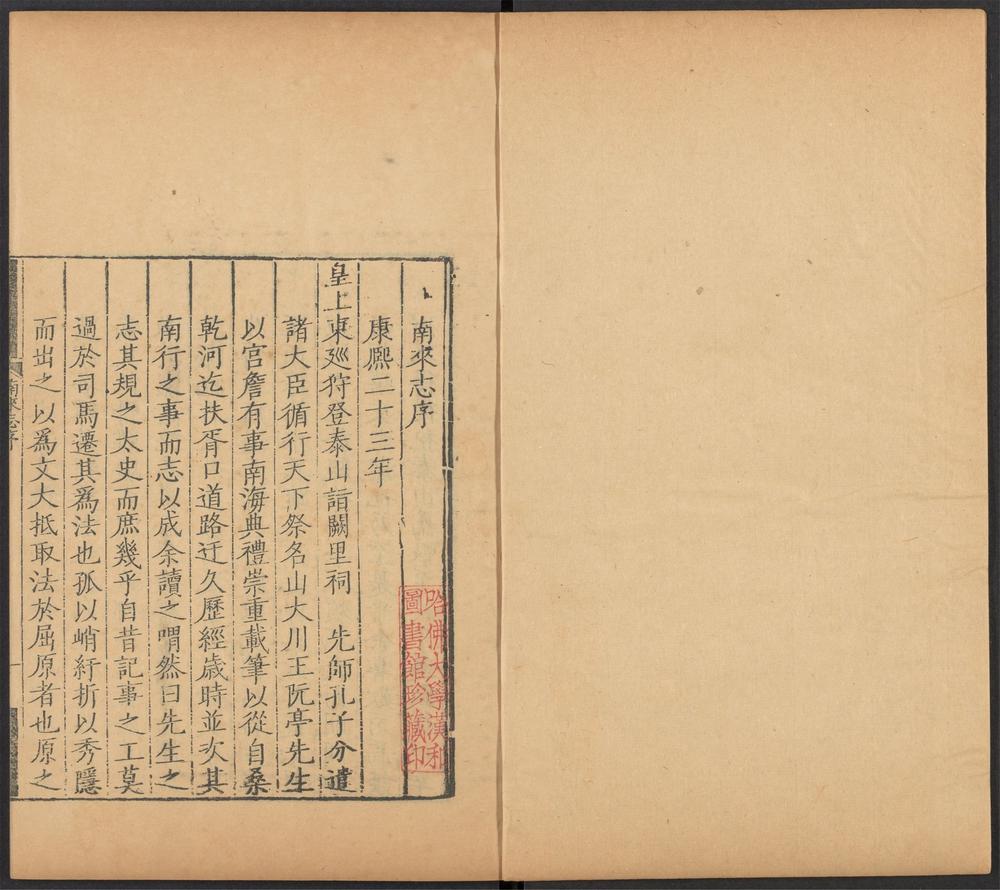 南來志序
康熙二十三年
皇上東廵狩登泰山詣闕里祠　先師孔子分遣
諸大臣循行天下祭名山大川王阮亭先生
以宫詹有事南海典禮崇重載筆以從自桑
乾河迄扶胥口道路迂久歷經歲時並次其
南行之事而志以成余讀之喟然曰先生之
志其規之太史而庶幾乎自昔記事之工莫
過於司馬遷其爲法也孤以峭紆折以秀隱
而出之以爲文大抵取法於屈原者也原之
南來志序
一
哈佛大學漢和
圖書館珍藏印